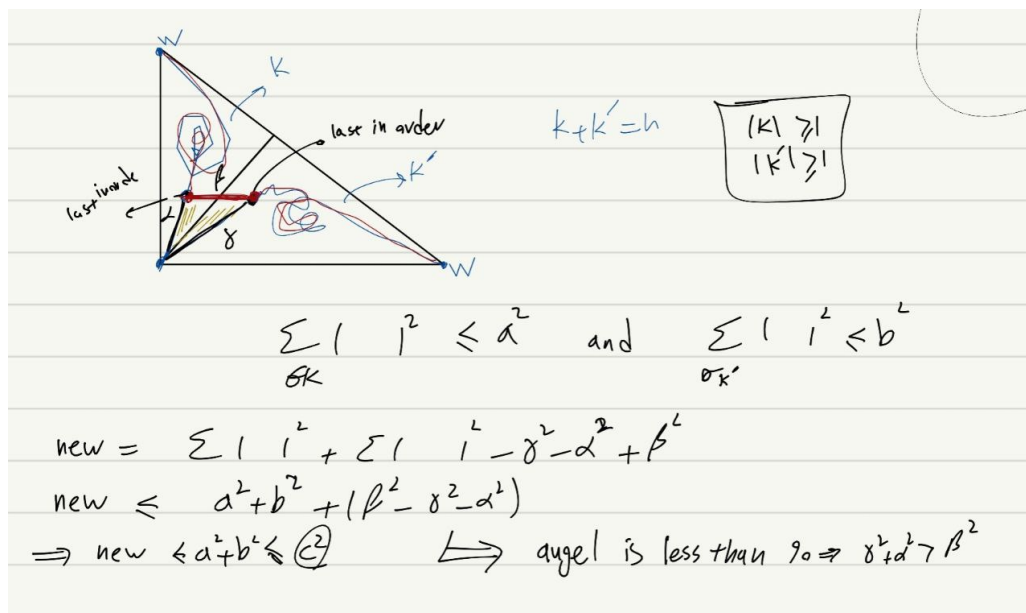 W
K
last in order
k+k'=n
|K| ≥1
|K'| ≥1
K'
β
last inorde
α
γ
W
Σ | |² ≤ a² and Σ | |² ≤ b²
σK σK'
new = Σ | |² + Σ | |² - γ² - α² + β²
new ≤ a²+b² + (β² - γ² - α²)
⇒ new ≤ a²+b² ≤ c² ↦ angel is less than 90 ⇒ γ²+α² > β²